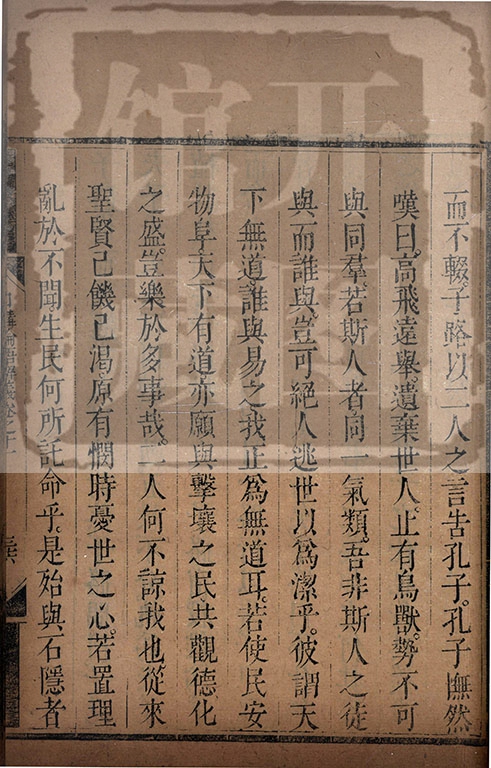 而不輟。子路以二人之言告孔子。孔子憮然
嘆曰。高飛遠舉。遺棄世人。止有鳥獸。勢不可
與同羣。若斯人者同一氣類。吾非斯人之徒
與而誰與。豈可絕人逃世以爲潔乎。彼謂天
下無道。誰與易之。我正爲無道耳。若使民安
物阜。天下有道。亦願與擊壤之民共觀德化
之盛。豈樂於多事哉。二人何不諒我也。從來
聖賢已饑已渴。原有憫時憂世之心。若置理
亂於不聞。生民何所託命乎。是殆與石隱者